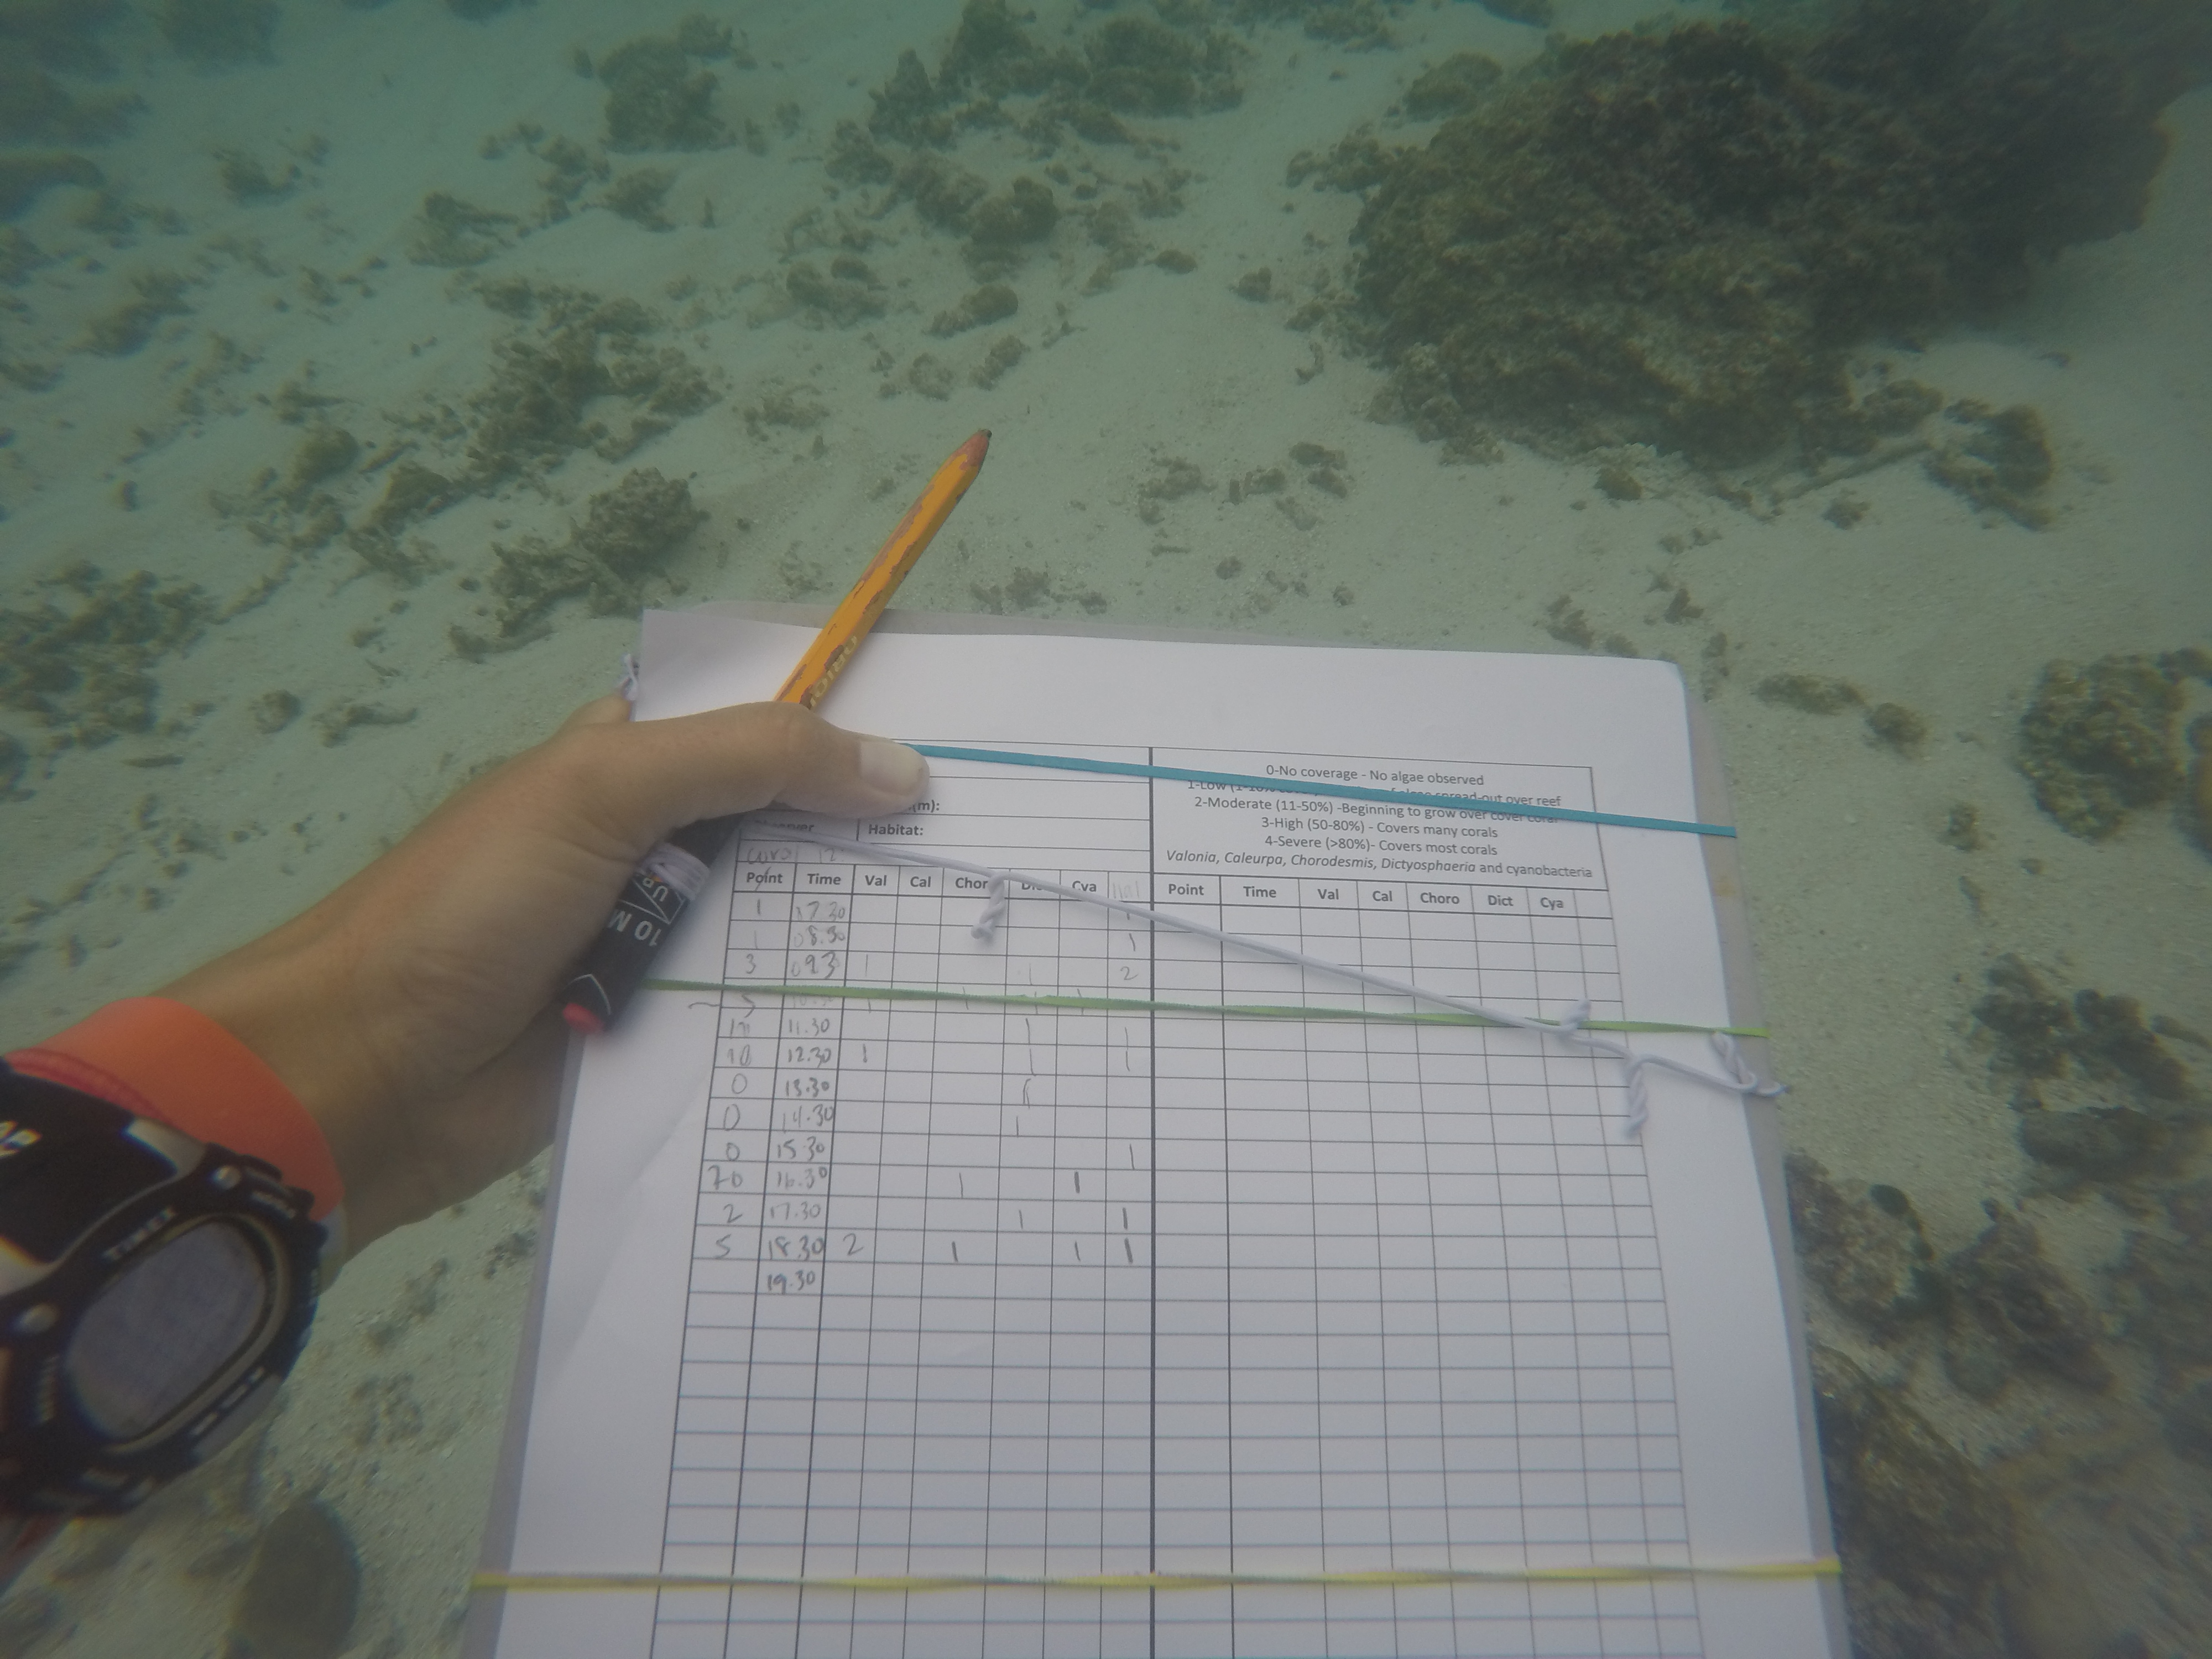 (m):
Habitat:
12
0-No coverage - No algae observed
1-Low algae spread-out over reef
2-Moderate (11-50%) -Beginning to grow over cover coral
3-High (50-80%) - Covers many corals
4-Severe (>80%)- Covers most corals
Valonia, Caleurpa, Chorodesmis, Dictyosphaeria and cyanobacteria
Point Time Val Cal Chor Cya
Point Time Val Cal Choro Dict Cya
1 07.30 1
1 08.30 1
3 1 1 2
11.30 1 1
10 12.30 1 1 1
0 13.30 1
0 14.30 1
0 15.30 1
70 16.30 1 1
2 17.30 1 1
5 18.30 2 1 1 1
19.30
10 M
TIMEX